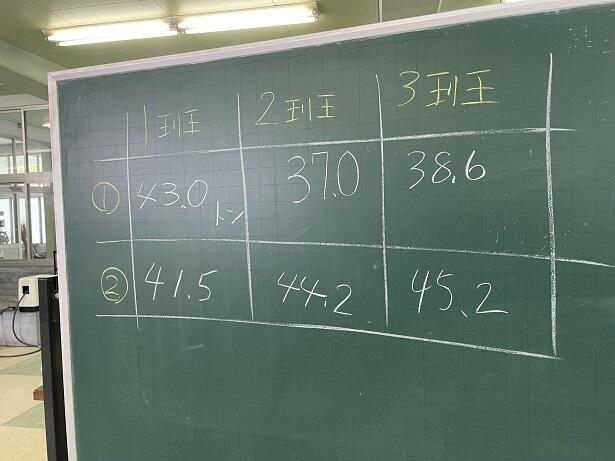 1班 2班 3班
① 43.0トン 37.0 38.6
② 41.5 44.2 45.2